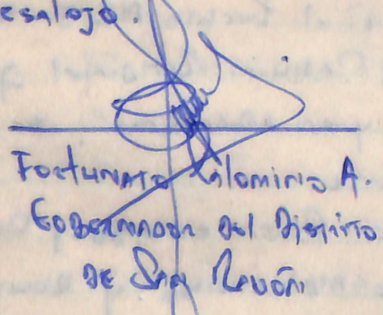 esalojo.
Fortunato Palomino A.
Gobernador del Distrito
de San Ramón